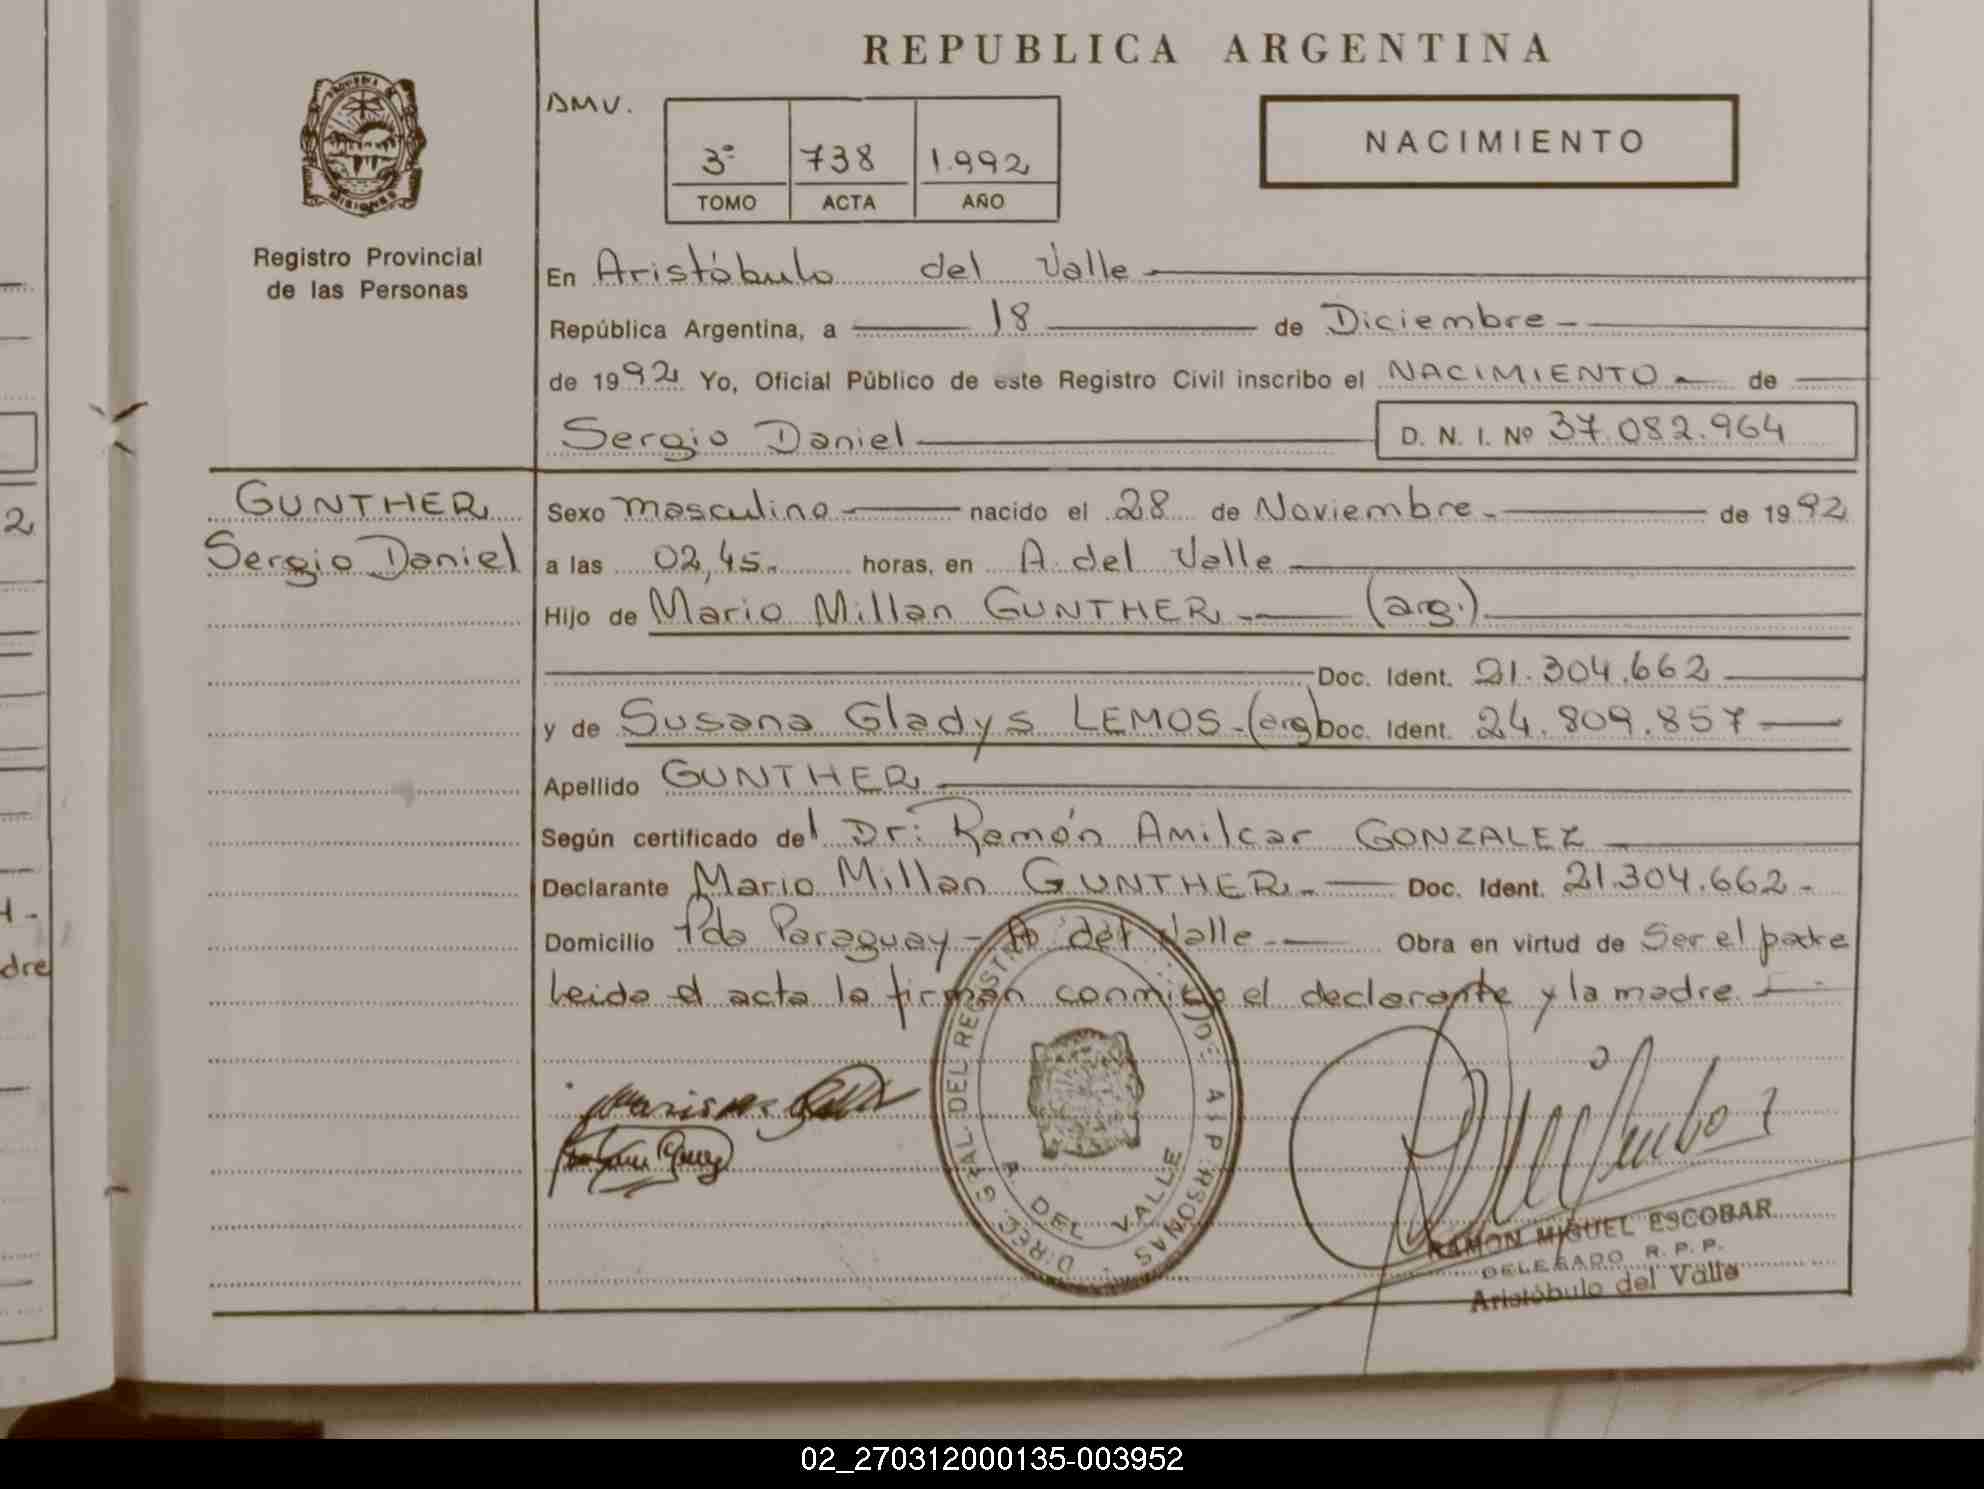 REPUBLICA ARGENTINA
DMV.
3º 738 1.992
TOMO ACTA AÑO
NACIMIENTO
MISIONES
Registro Provincial
de las Personas
En Aristóbulo del Valle
República Argentina, a 18 de Diciembre
de 1992 Yo, Oficial Público de este Registro Civil inscribo el NACIMIENTO de
Sergio Daniel D. N. I. Nº 37.082.964
GUNTHER
Sergio Daniel
Sexo masculino nacido el 28 de Noviembre de 1992
a las 02,45 horas, en A. del Valle
Hijo de Mario Millan GUNTHER (arg.)
Doc. Ident. 21.304.662
y de Susana Gladys LEMOS (arg) Doc. Ident. 24.809.857
Apellido GUNTHER
Según certificado del Dr: Ramón Amilcar GONZALEZ
Declarante Mario Millan GUNTHER Doc. Ident. 21.304.662
Domicilio Pda Paraguay - A. del Valle Obra en virtud de Ser el padre
Leida el acta la firman conmigo el declarante y la madre
DIREC. GRAL. DEL REGISTRO DE LAS PERSONAS
A. DEL VALLE
RAMON MIGUEL ESCOBAR
DELEGADO R. P. P.
Aristóbulo del Valle
2
dre
02_270312000135-003952